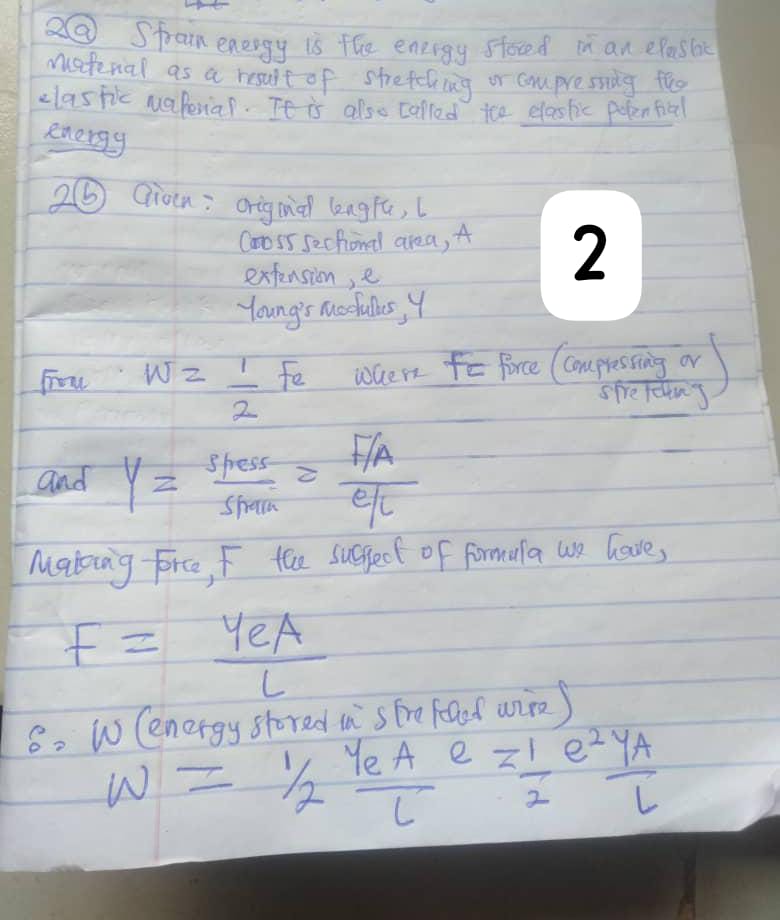 2(a) Strain energy is the energy stored in an elastic
material as a result of stretching or compressing the
elastic material. It is also called the elastic potential
energy
2(b) Given: original length, L
Cross sectional area, A
extension, e
Young's Modulus, Y
2
From W = 1/2 Fe where F = force (compressing or stretching)
and Y = stress/strain = F/A / e/L
Making force, F the subject of formula we have,
F = YeA/L
∴ W (energy stored in stretched wire)
W = 1/2 YeA/L e = 1/2 e² YA/L